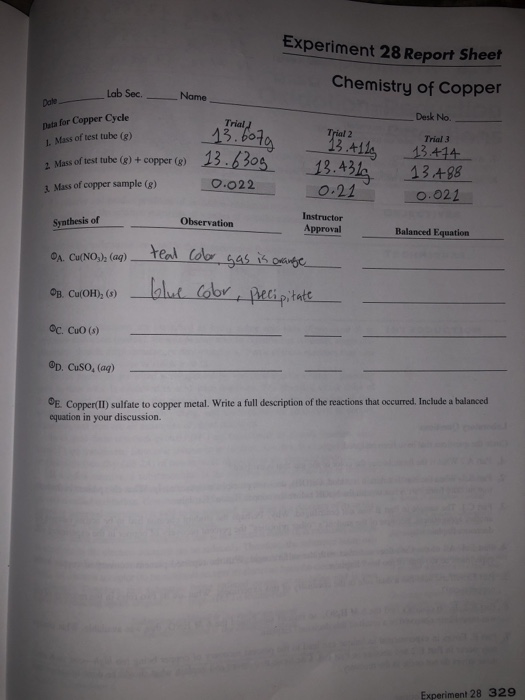 Experiment 28 Report Sheet
Chemistry of Copper
Date Lab Sec. Name Desk No.
Data for Copper Cycle Trial 1 Trial 2 Trial 3
1. Mass of test tube (g) 13.607g 13.411g 13.474
2. Mass of test tube (g) + copper (g) 13.630g 13.431g 13.488
3. Mass of copper sample (g) 0.022 0.21 0.021
Synthesis of Observation Instructor Approval Balanced Equation
A. Cu(NO₃)₂ (aq) teal color gas is orange
B. Cu(OH)₂ (s) blue color, precipitate
C. CuO (s)
D. CuSO₄ (aq)
E. Copper(II) sulfate to copper metal. Write a full description of the reactions that occurred. Include a balanced
equation in your discussion.
Experiment 28 329